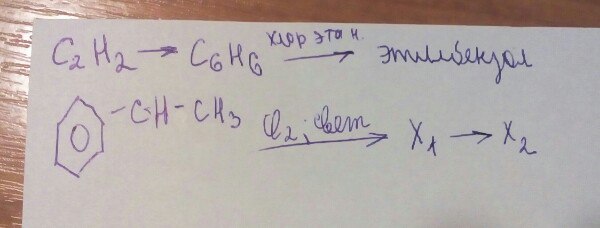 C₂H₂ → C₆H₆ хлорэтан. → этилбензол
-CH-CH₃ Cl₂; свет → X₁ → X₂